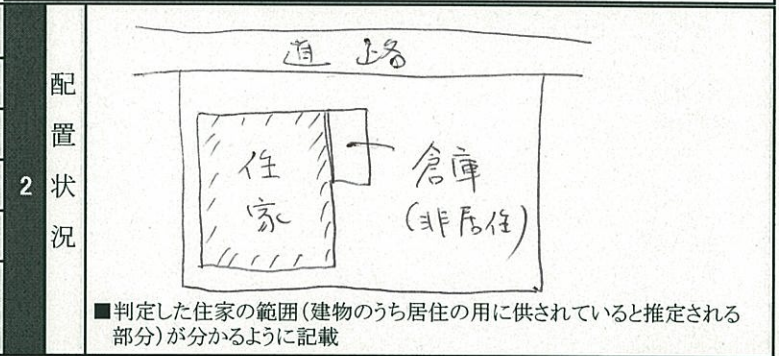 道路
2
配置状況
住家
倉庫
(非居住)
■判定した住家の範囲(建物のうち居住の用に供されていると推定される
部分)が分かるように記載